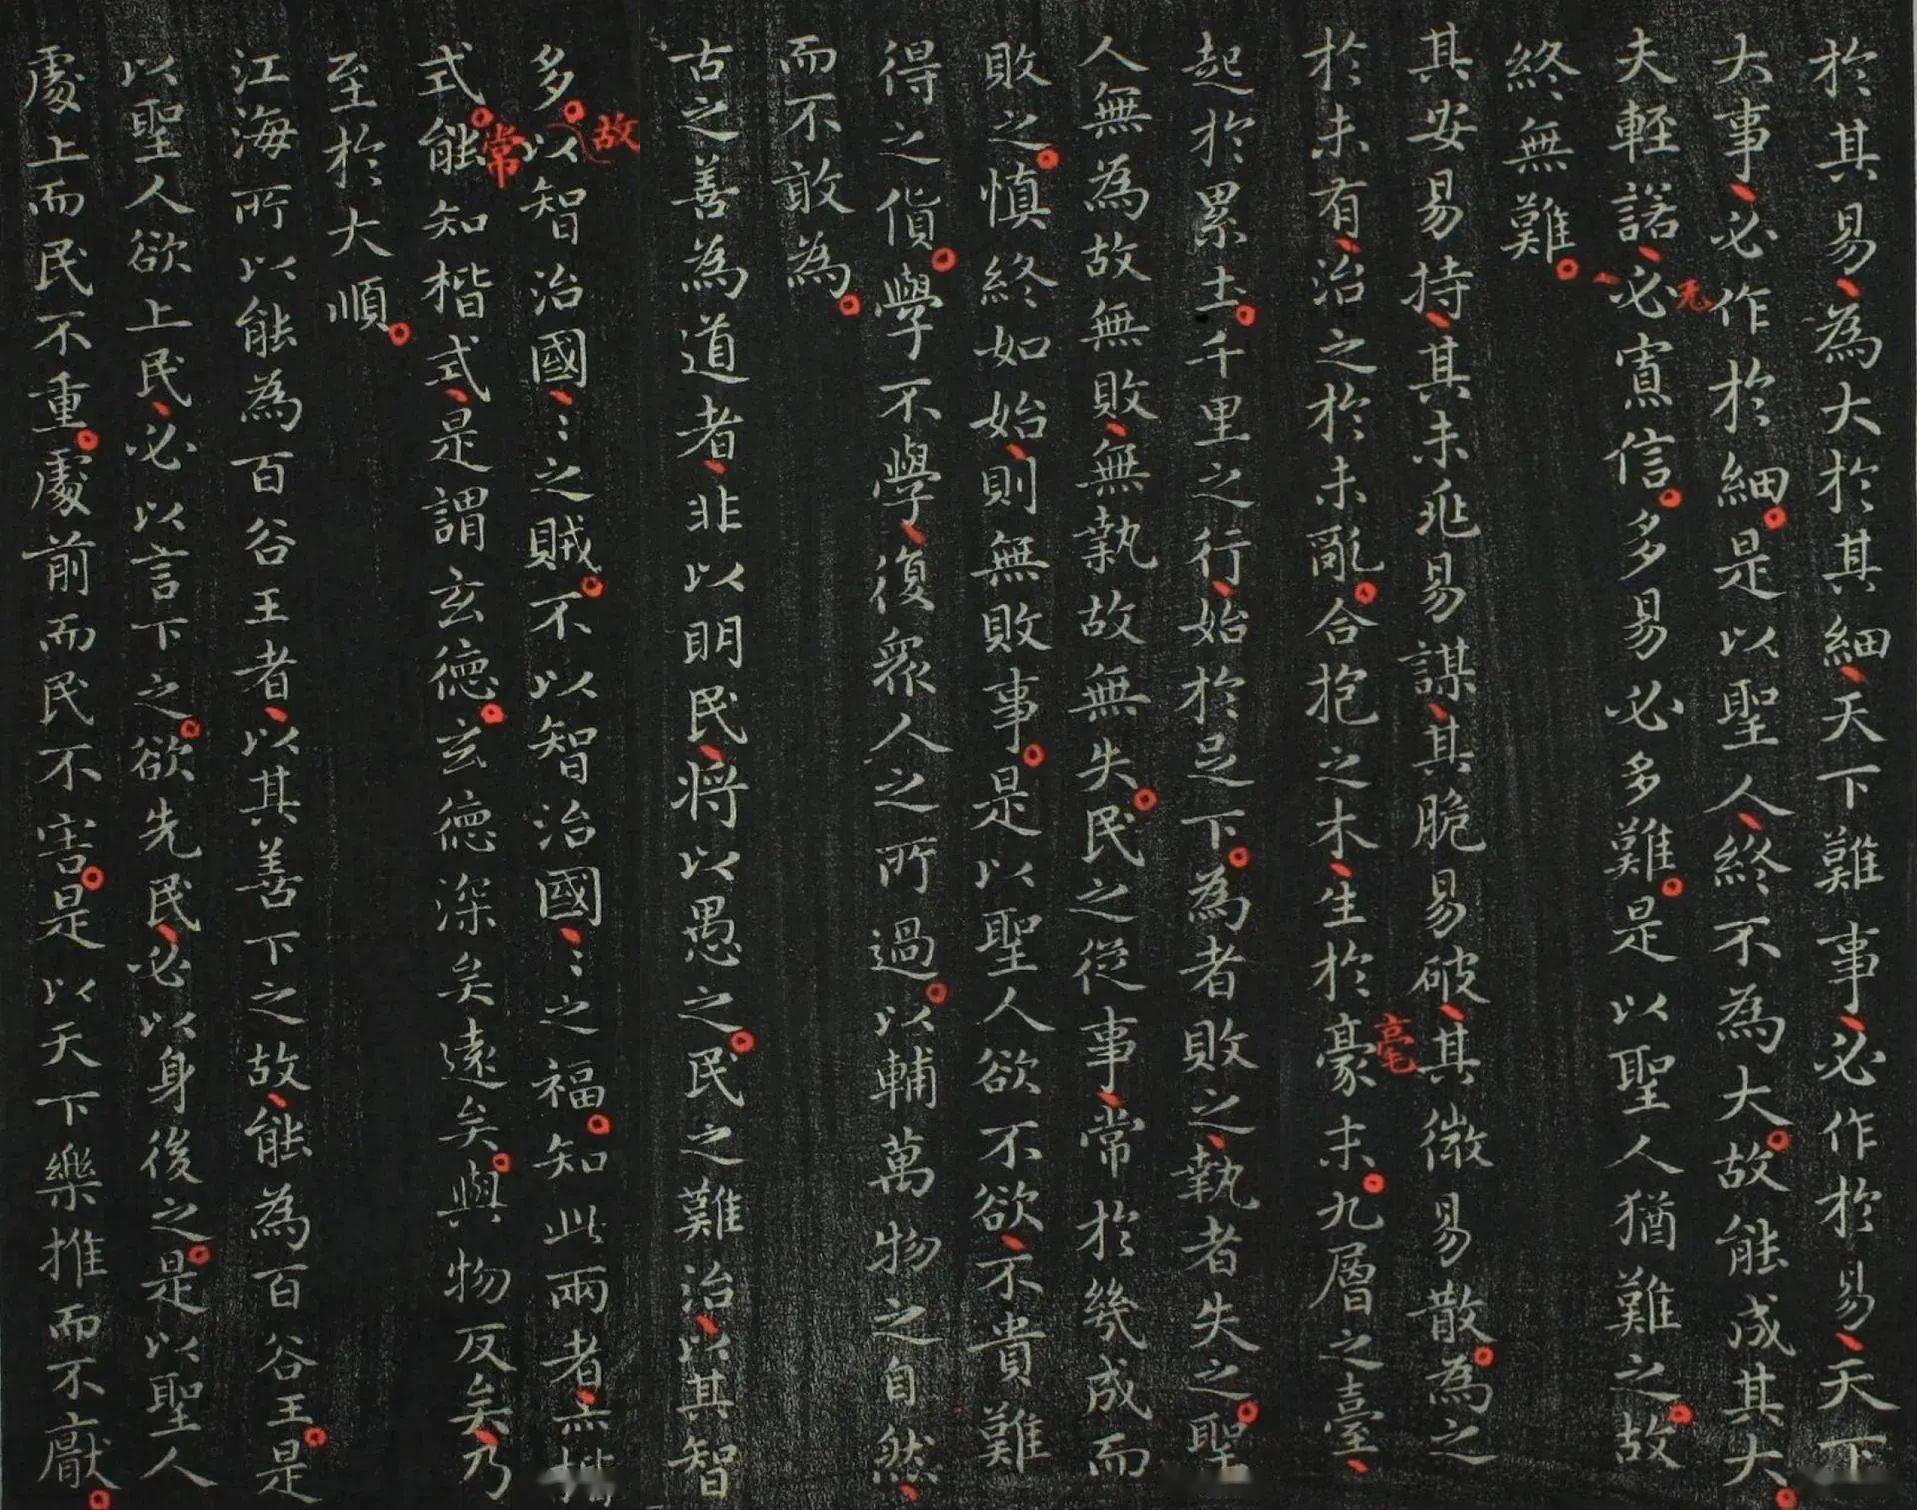 於其易、為大於其細、天下難事、必作於易、天下
大事、必作於細。是以聖人、終不為大。故能成其大。
夫輕諾、必寡信。多易必多難。是以聖人猶難之。故
無
終無難。
其安易持、其未兆易謀、其脆易破、其微易散。為之
於未有、治之於未亂。合抱之木、生於豪末。九層之臺、
毫
起於累土。千里之行、始於足下。為者敗之、執者失之。聖
人無為故無敗、無執故無失。民之從事、常於幾成而
敗之。慎終如始、則無敗事。是以聖人欲不欲、不貴難
得之貨。學不學、復眾人之所過。以輔萬物之自然、
而不敢為。
古之善為道者、非以明民、將以愚之。民之難治、以其智
多。以智治國、〻之賊。不以智治國、〻之福。知此兩者、亦楷
故
式。能知楷式、是謂玄德。玄德深矣遠矣。與物反矣、乃
常
至於大順。
江海所以能為百谷王者、以其善下之故、能為百谷王。是
以聖人欲上民、必以言下之。欲先民、必以身後之。是以聖人
處上而民不重。處前而民不害。是以天下樂推而不厭。